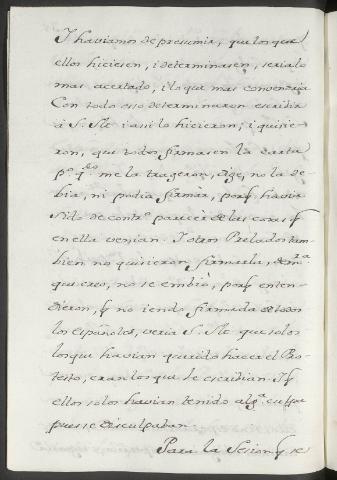 I haviamos de presumir, que los que
ellos hiciesen, i determinasen, seria lo
mas acertado, i lo que mas convenia
Con todo esso determinaron escribir
à S. Mg. i assi lo hicieron; i quisie-
ron, que todos firmasen la carta
pº. me la trageron, dige, no la de-
bia, ni podia firmàr, porq. havia
sido de contrº. parecer de las cosas q.
en ella venian. I otros Prelados tam-
bien no quisieron firmarla, dem.ª
que creo, no se embiò, porq. enten-
dieron, q. no iendo firmada de todos
los Españoles, veria S. Mg. que solos
los que havian querido hacer el Pro-
testo, eran los que le escribian. I q.
ellos solos havian tenido alg.ª culpa
pues se disculpaban
Para la Sesion q. se